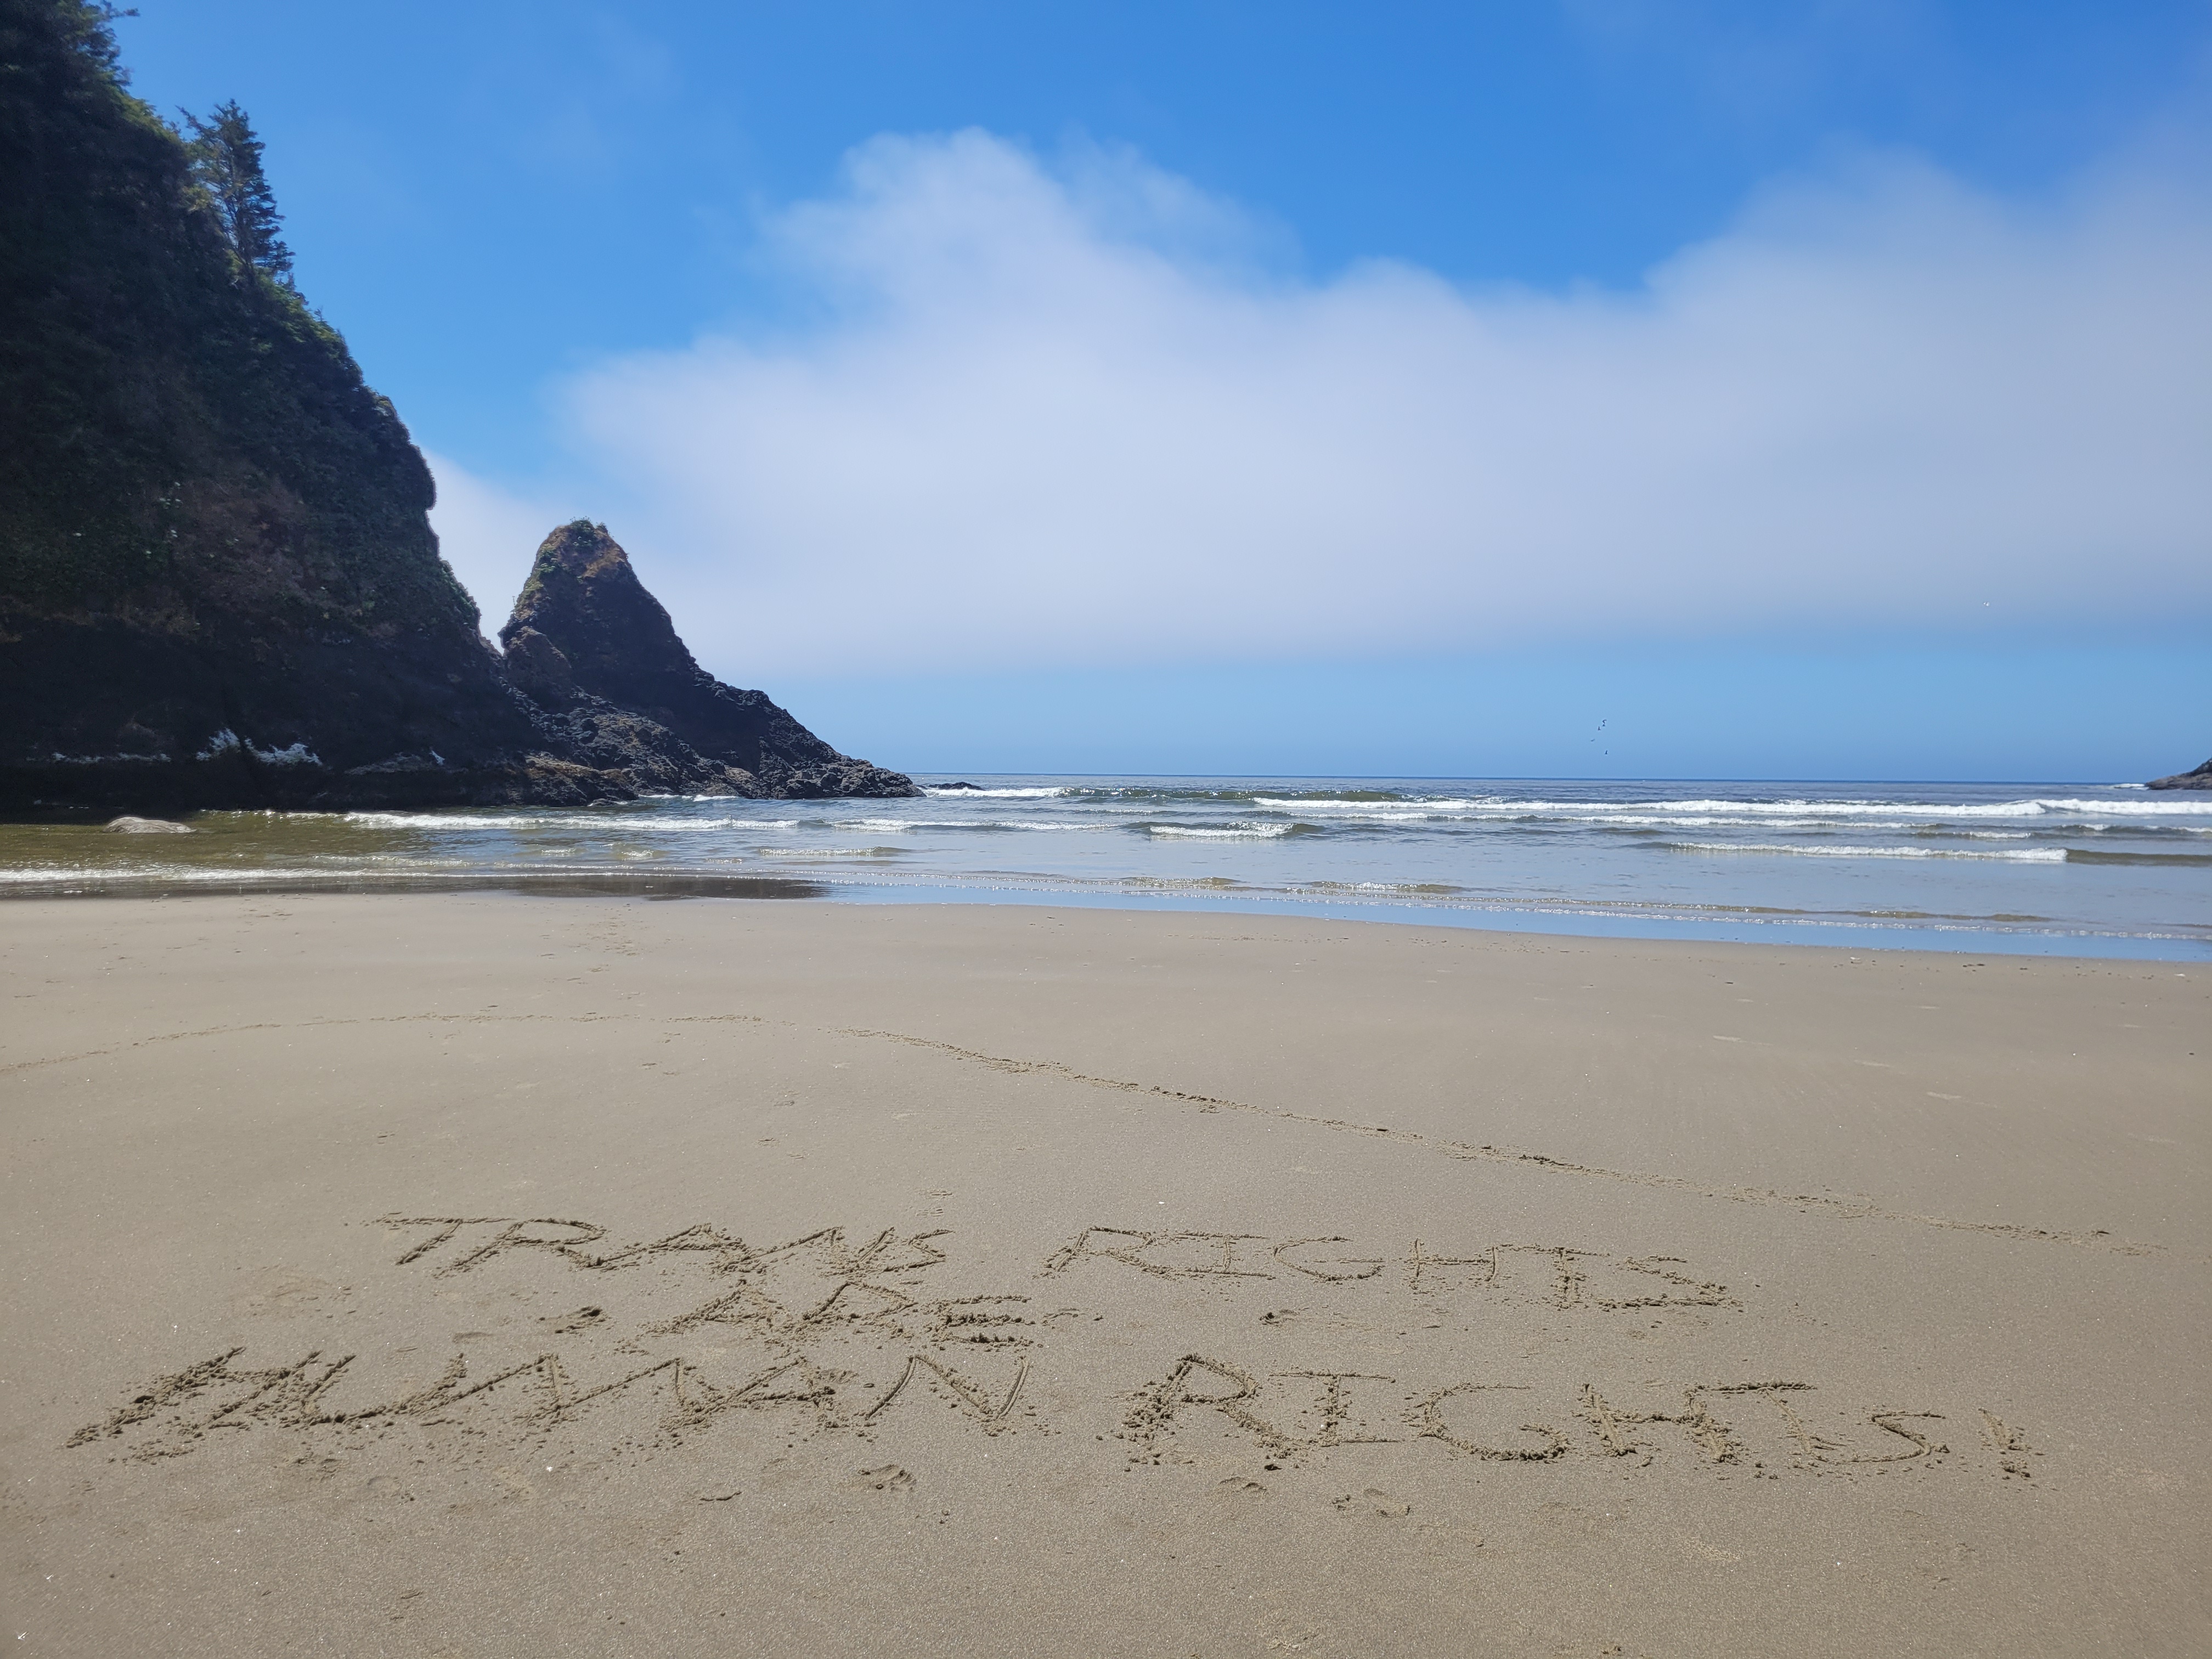 TRANS RIGHTS
ARE
HUMAN RIGHTS!